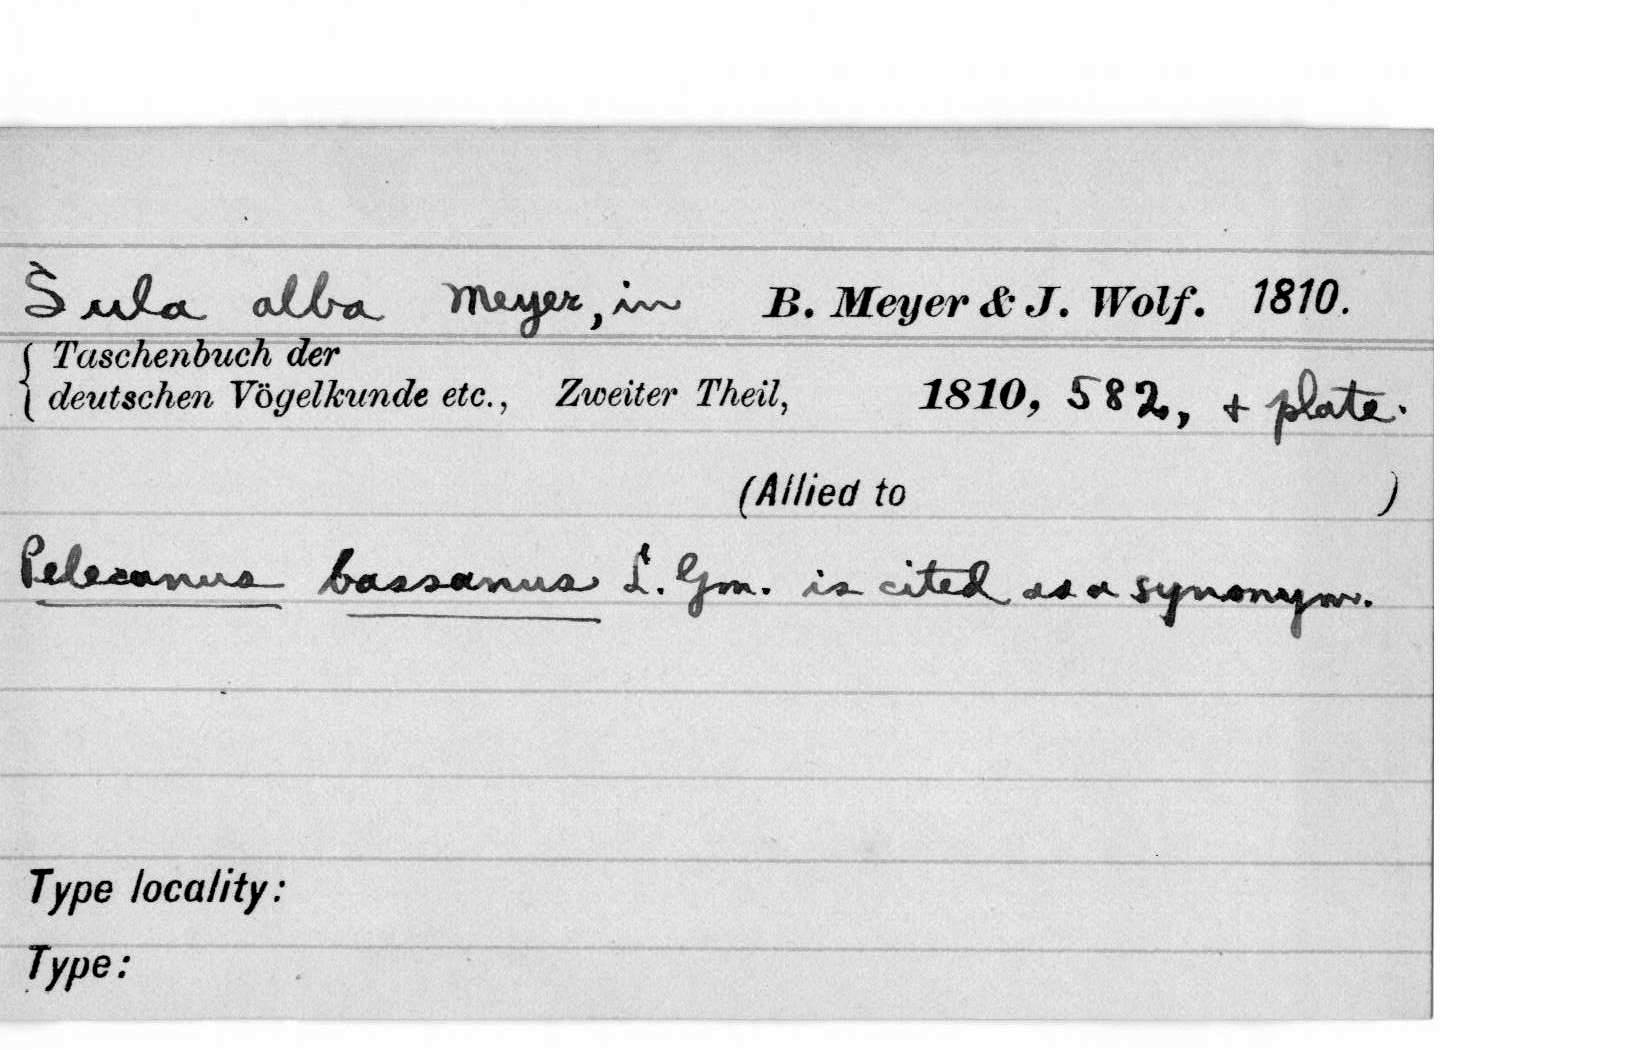 Sula alba Meyer, in B. Meyer & J. Wolf. 1810.
{ Taschenbuch der
deutschen Vögelkunde etc., Zweiter Theil, 1810, 582, + plate.
(Allied to )
Pelecanus bassanus L. Gm. is cited as a synonym.
Type locality:
Type: